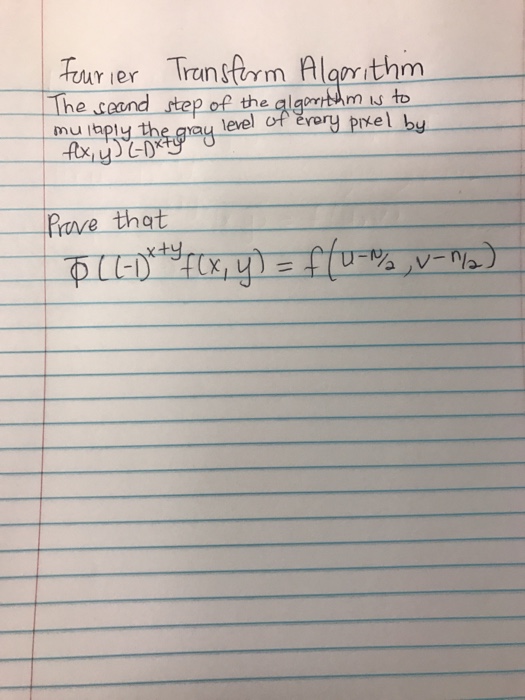 Fourier Transform Algorithm
The second step of the algorithm is to
multiply the gray level of every pixel by
f(x,y)(-1)^x+y
Prove that
Φ((-1)^x+y f(x,y) = f(u-N/2, v-n/2)